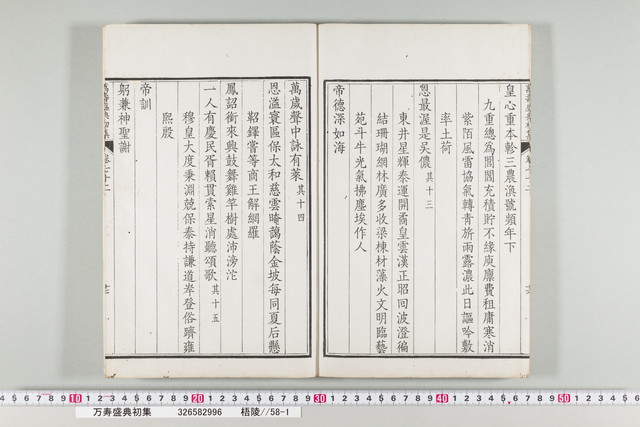 皇心重本軫三農渙號頻年下
九重總為閭閻充積貯不緣庾廪費租庸寒消
紫陌風雷協氣轉青旂雨露濃此日謳吟敷
率土荷
恩最渥是吳儂其十三
東井星輝泰運開喬皇雲漢正昭回波澄徧
結珊瑚網林廣多收梁棟材藻火文明臨藝
苑斗牛光氣拂塵埃作人
帝德深如海
萬歲聲中詠有萊其十四
恩溢寰區保太和慈雲晻藹蔭金坡每同夏后懸
鞀鐸嘗等商王解網羅
鳳詔銜來興鼓舞雞竿樹處沛滂沱
一人有慶民胥賴貫索星消聽頌歌其十五
穆皇大度秉淵兢保泰持謙道牟登俗躋雍
熙殷
帝訓
躬兼神聖謝
萬壽盛典初集
卷七十二
10 20 30 40 50
万寿盛典初集 326582996 梧陵//58-1